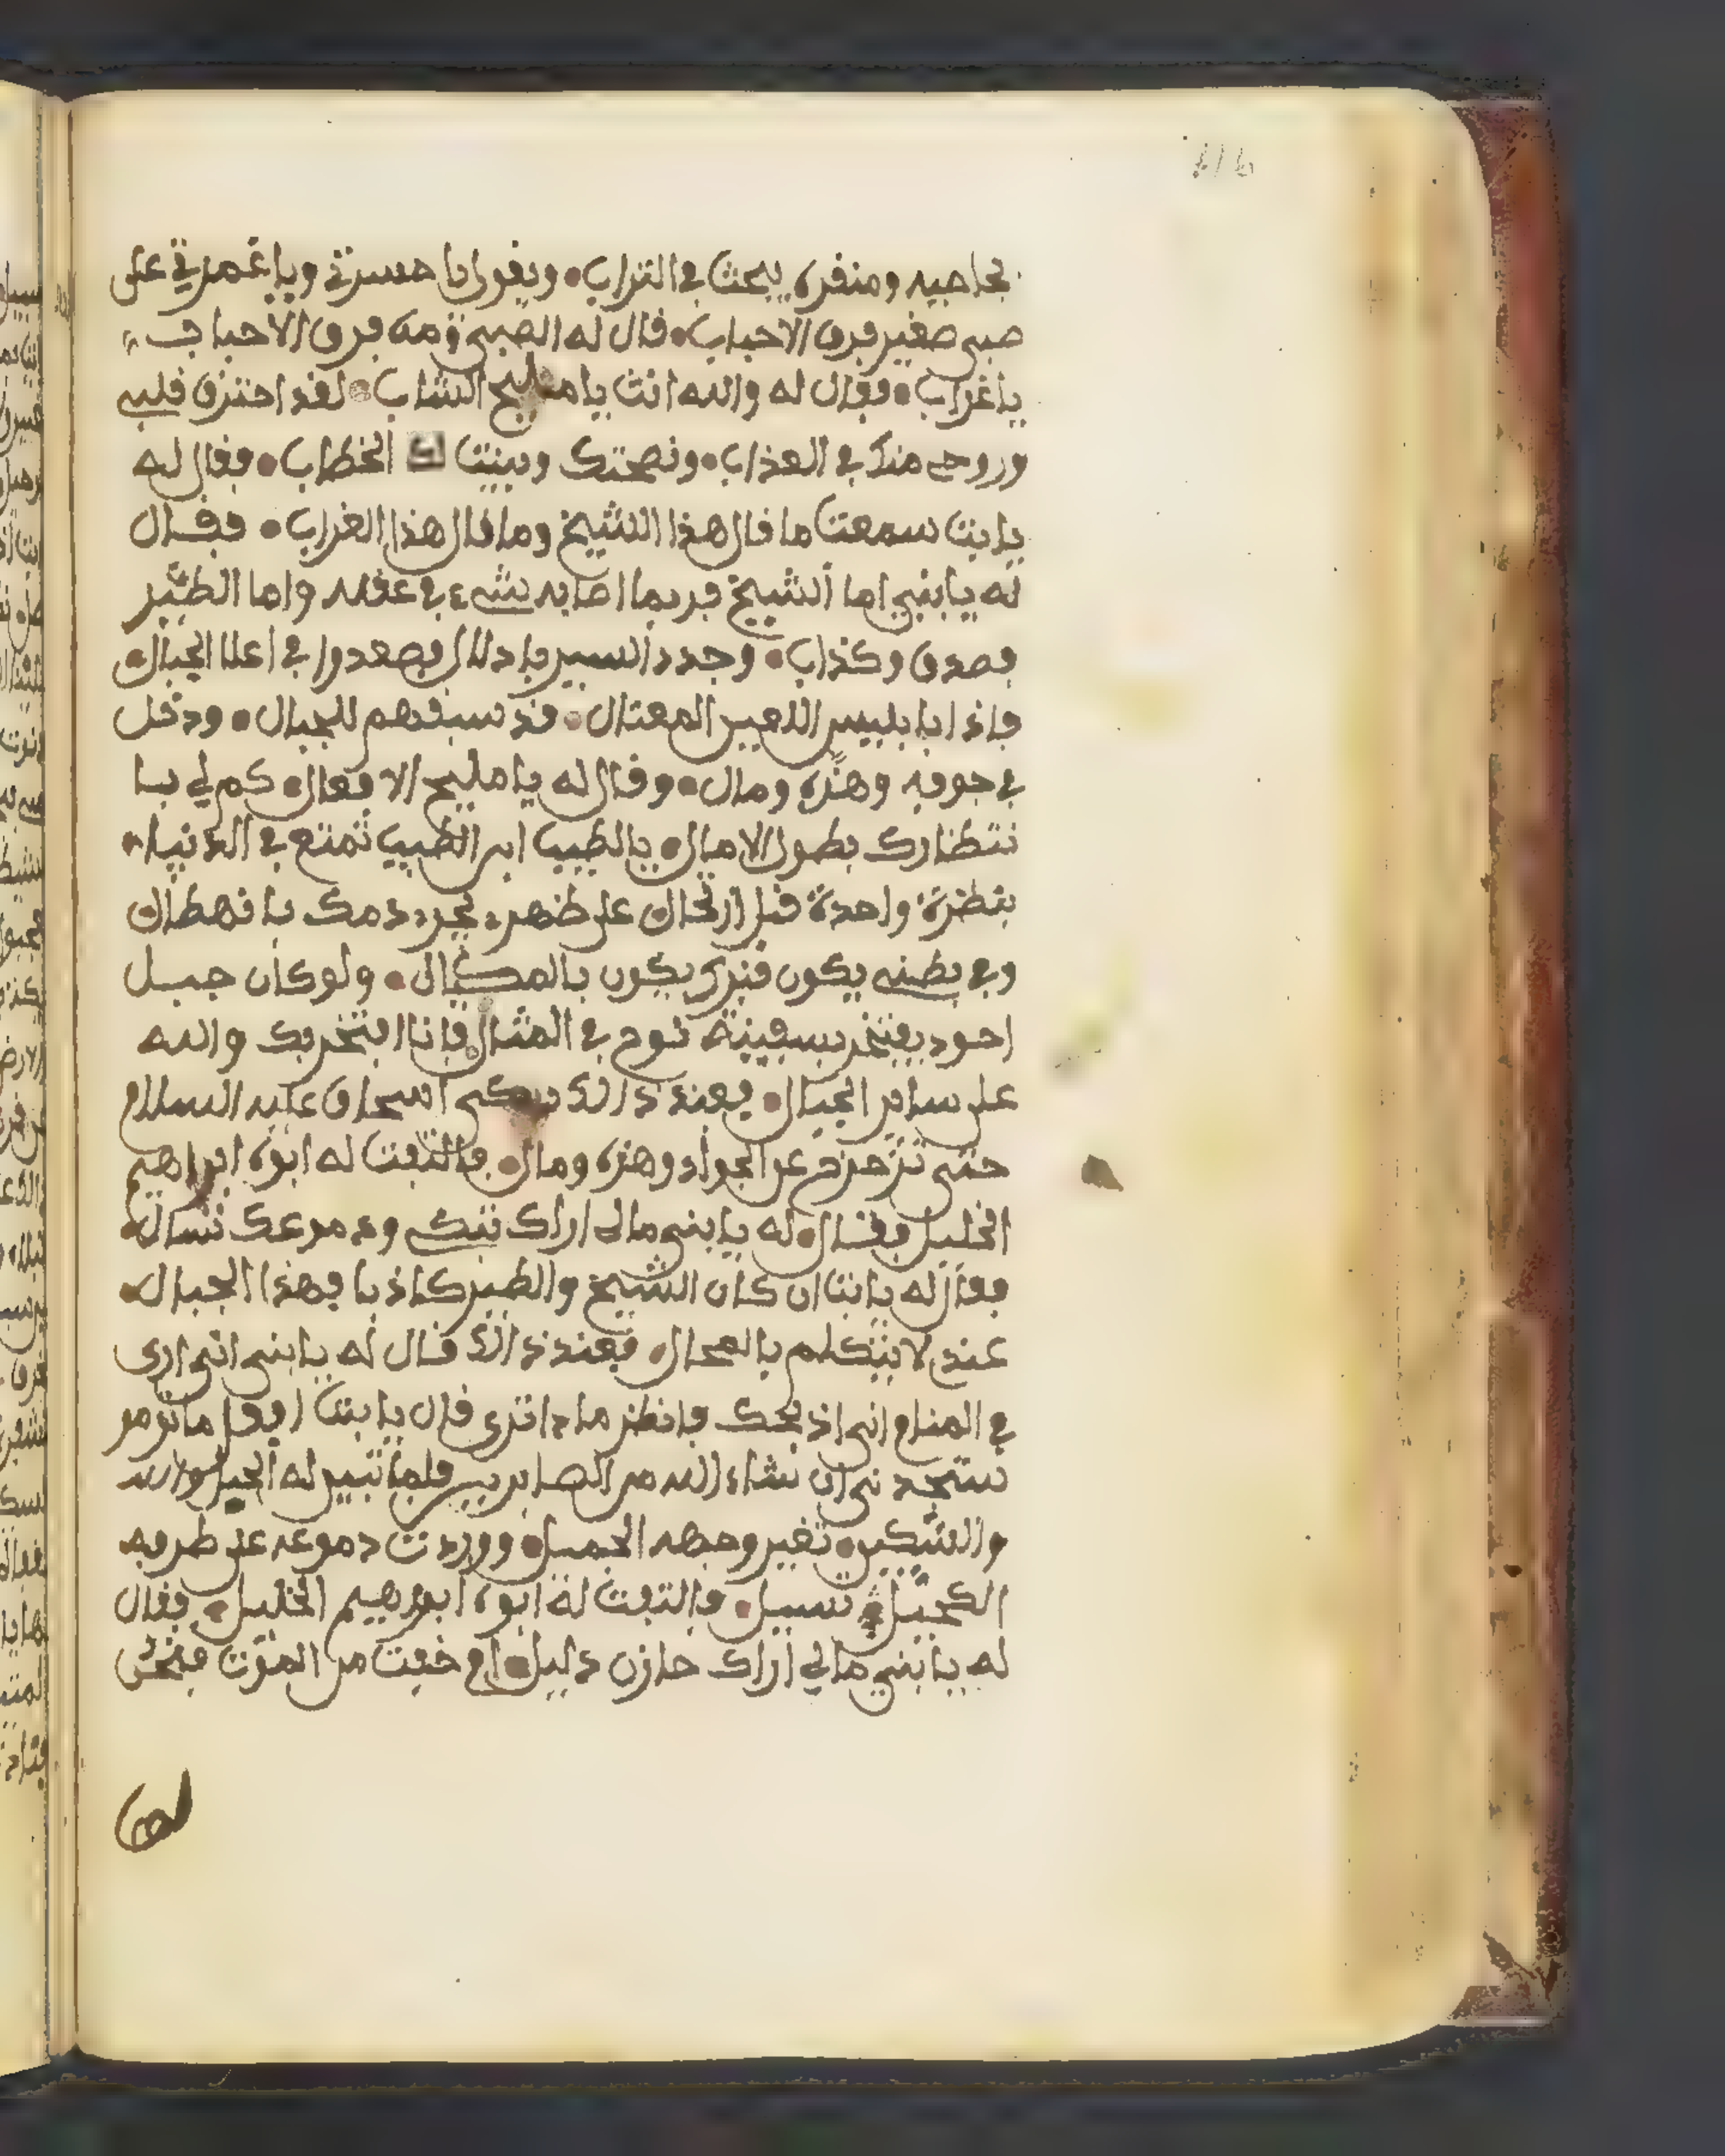 بجاحيه ومنقره يبحث في التراب• ويقول يا حسرتي ويا غمرتي على
صبي صغير فرق الاحباب• قال له الصبي ومن فرق الاحباب
يا غراب• فقال له والله انت يا مليح الشاب• لقد احترق قلبي
وروحي منك في العذاب• ونصحتك وبينت لك الخطاب• فقال له
يا بت سمعت ما قال هذا الشيخ وما قال هذا الغراب• فقال
له يا بني اما الشيخ فربما اصابه شيء في عقله واما الطير
فصدق وكذاب• وجدد السير بادلال فصعدوا في اعلا الجبال•
فاذا بابليس اللعين المعتال• قد سبقهم للجبال• ودخل
في جوفه وهزه ومال• وقال له يا مليح الافعال• كم لي با
نتظارك بطول الاميال• يا لطيب ابن الطيب تمتع في الدنيا•
بنظرة واحدة قبل ارتحال على ظهري يجري دمك بانهطال
وفي بطني يكون قبرك يكون بالمكيال• ولو كان جبل
احود يفتخر بسفينة نوح في المثال فانا افتخر بك والله
على ساير الجبال• فعند ذالك بكى اسحاق عليه السلام
حتى تزحزح عن الجواد وهزه ومال• فالتفت له ابوه ابراهيم
الخليل وقال• له يا بني مالي اراك تبكي ودمرعك تسال•
فقال له يا بت ان كان الشيخ والطير كاذبا فهذا الجبال•
عندي لا يتكلم بالمحال• فعند ذالك قال له يا بني اني ارى
في المنام اني اذبحك فانظر ماذا ترى قال يا بت افعل ما تومر
ستجدني ان شاء الله من الصابرين فلما تبين له الحبل
والسكين• تغير وجهه الجميل• ووردت دموعه على طرفه
الكحيل• تسيل• فالتفت له ابوه ابرهيم الخليل• فقال
له يا بني مالي اراك حازن دليل• اح خفت من الموت فنحن